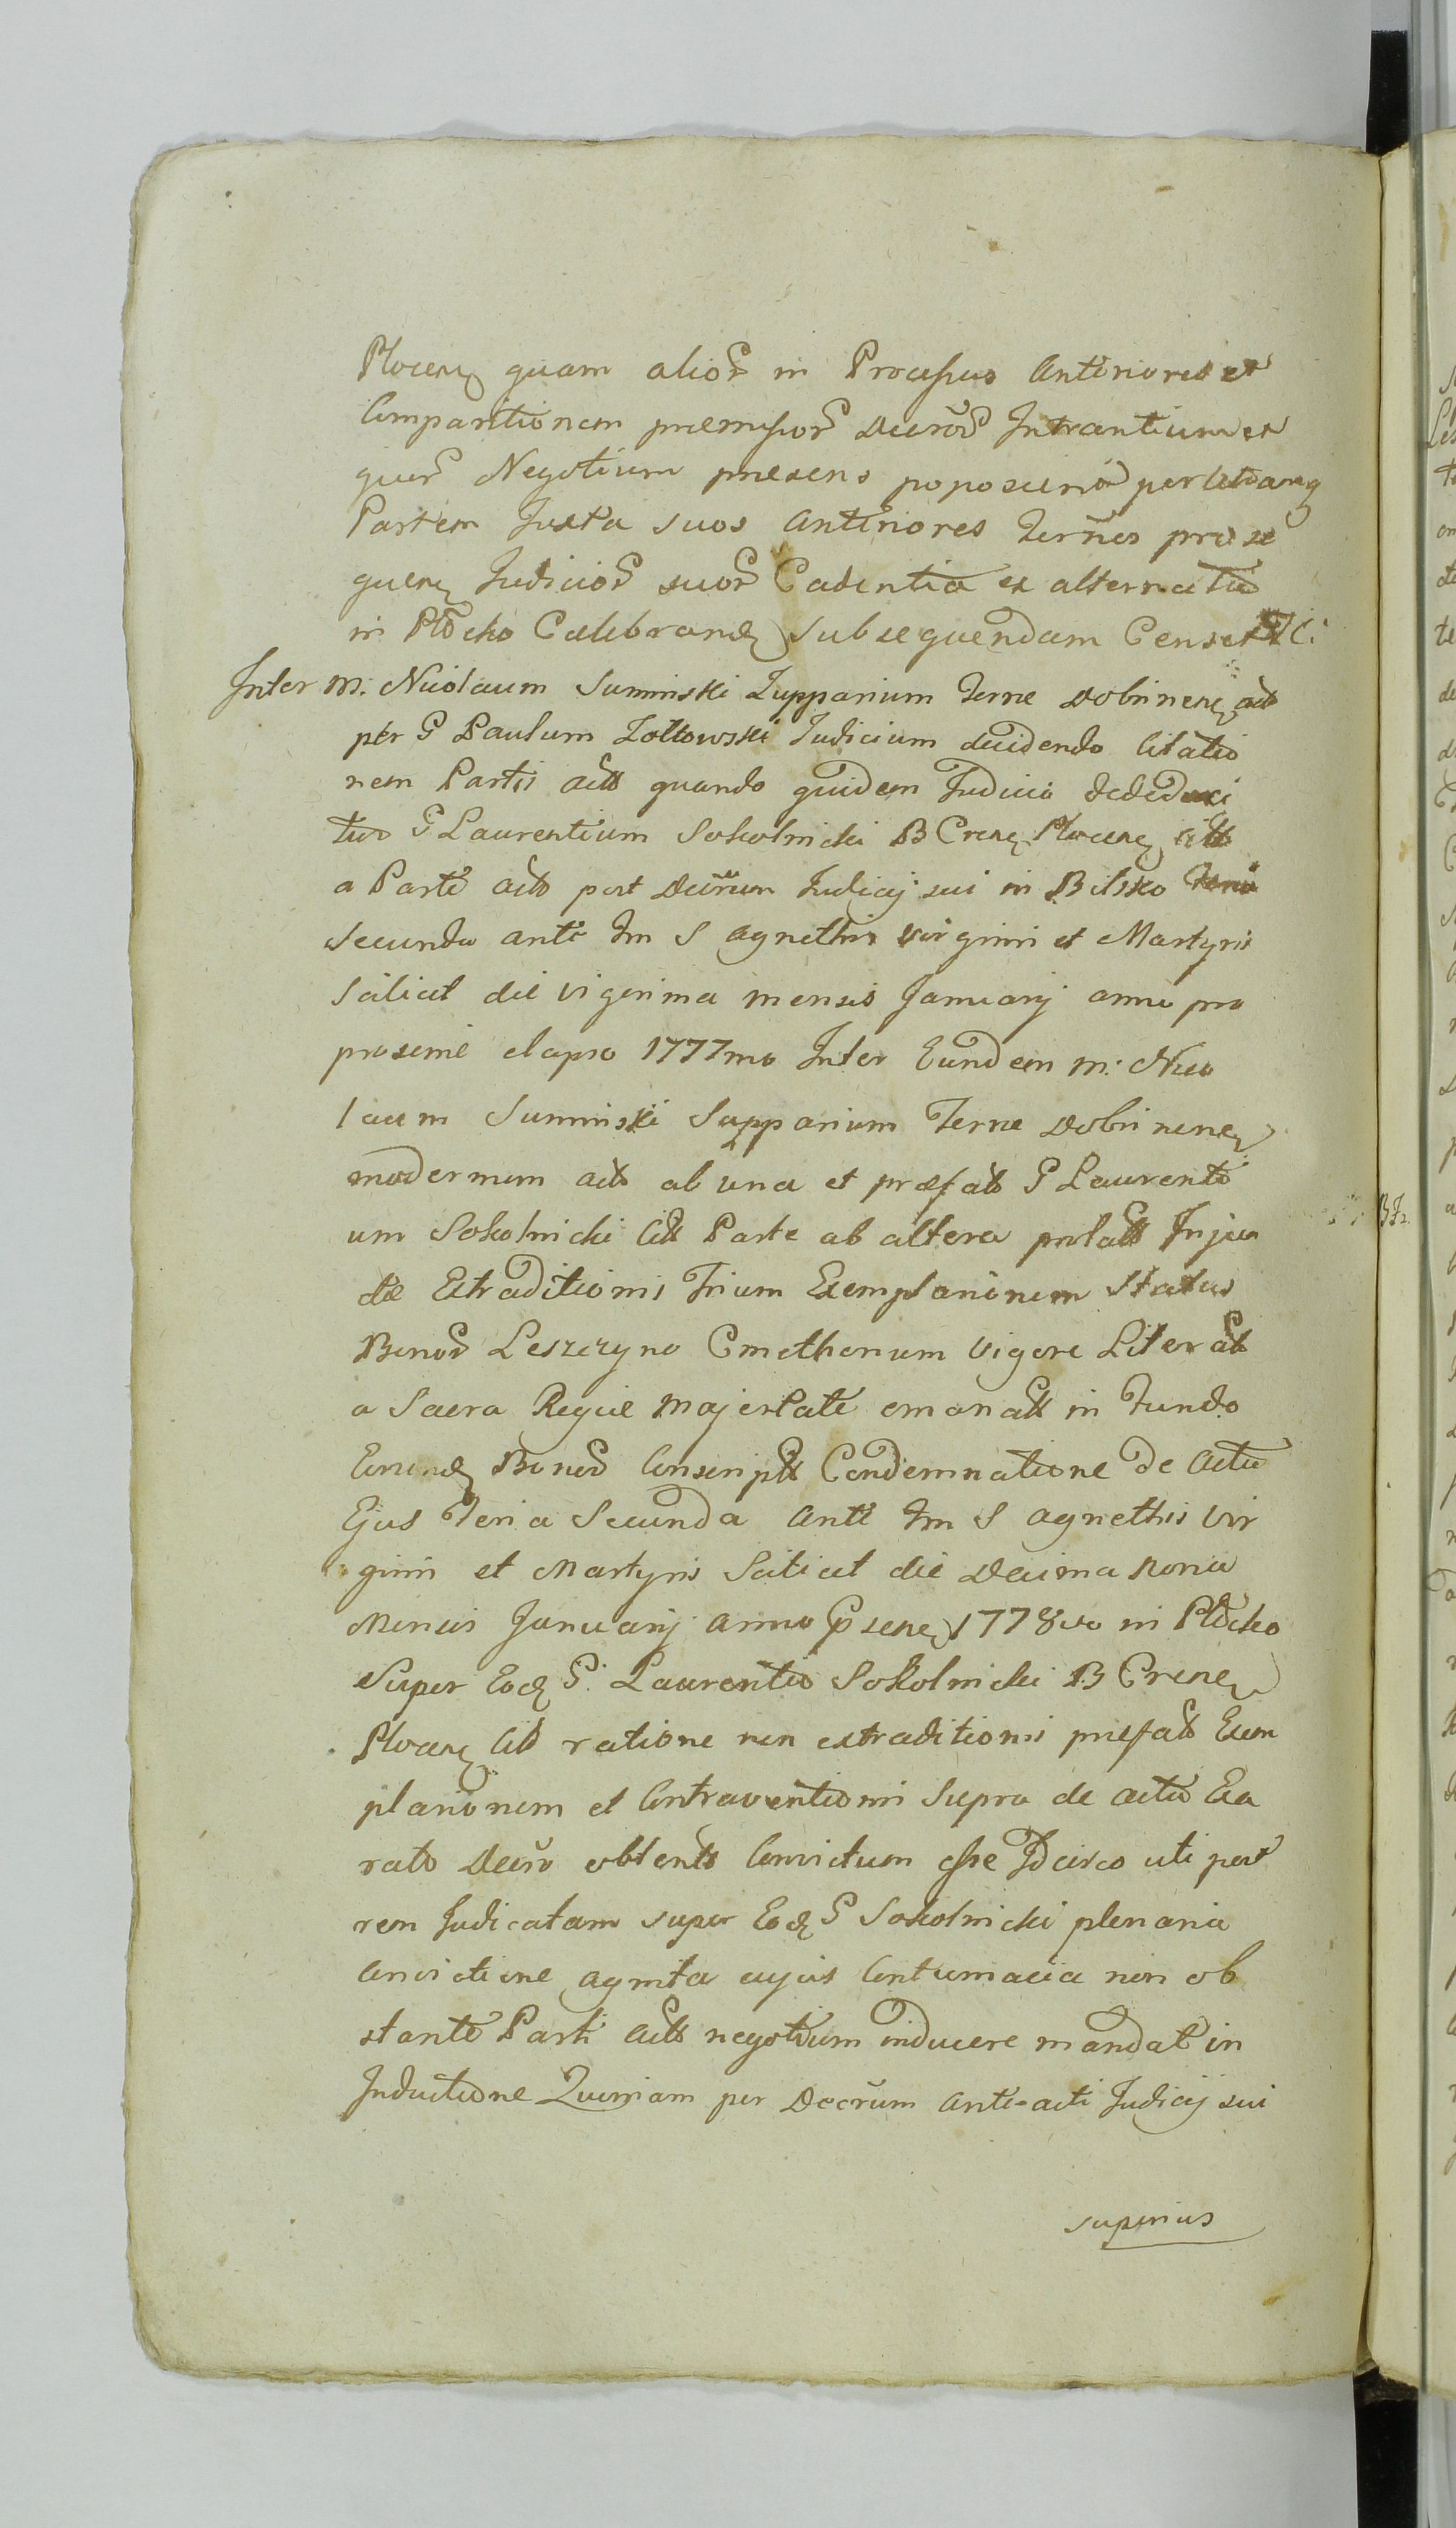 Plocens quam alior in Processus Anteriores et
Comparitionem praemissor Decror Intrantium et
quer Negotium praesens poposcerit per utramq
Partem Juxta suos Anteriores Terños prose
quens Judicior suor Cadentia ex alternata
in Płocko Celebrand subsequendam Censet
Inter M. Nicolaum Suminski Zupparium Terrae Dobrinens act
per G Paulum Zołtowski Judicium decidendo Citatio
nem Partis act quando quidem Judicio
tur G Laurentium Sokolnicki B Crens Plocens
a Parte act post Decrum Judicij sui in Bilsko Feria
Secunda ante Fm S Agnethis Virginis et Martyris
Scilicet die Vigesima mensis Januarij anno pro
proxime elapso 1777mo Inter Eundem M. Nico
laum Suminski Supparium Terrae Dobrinens
modernum act ab una et praefat G Laurenti
um Sokolnicki Citt Parte ab altera prolatt Injun
ctae Extraditionis Trium Exemplariorum Status
Bonor Leszczyno Cmethonum Vigore Literatt
a Sacra Regiae Majestate emanatt in Fundo
Eorund Bonor Conscriptt Condemnatione de Actu
Ejus Feria Secunda Ante Fm S Agnethis Vir
ginis et Martyris Scilicet die Decima Nona
Mensis Januarij Anno Psens 1778vo in Płocko
Super Eod G. Laurentio Sokolnicki B Crens
Plocens Citt ratione non extraditionis praefatt Exem
plariorum et Contraventionis Supra de actu Exa
rato Decro obtento Convictum esse Idcirco uti post
rem Judicatam super Eod G Sokolnicki plenaria
Convictione agnita cujus Contumacia non ob
stante Parti Actt negotium inducere mandat in
Inductione Quoniam per Decrum Ante-acti Judicij sui
superius